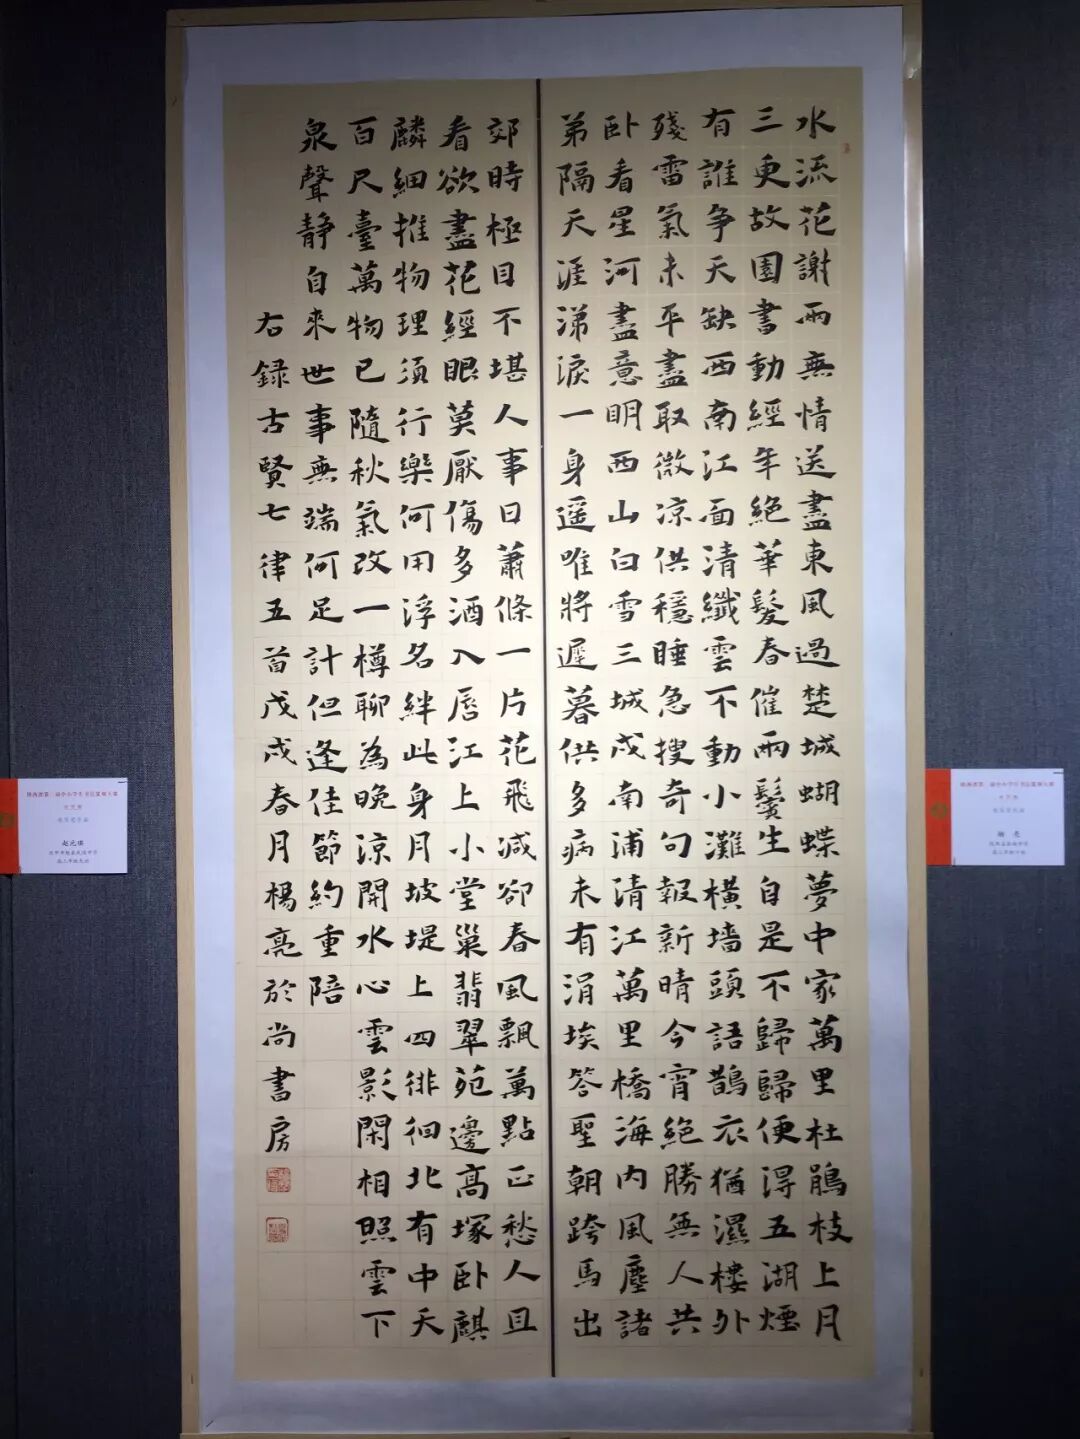 水流花謝兩無情送盡東風過楚城蝴蝶夢中家萬里杜鵑枝上月
三更故園書動經年絕華髮春催兩鬢生自是不歸歸便得五湖煙
有誰争天缺西南江面清纖雲不動小灘橫墙頭語鵲衣猶濕樓外
殘雷氣未平盡取微涼供穩睡急搜奇句報新晴今宵絕勝無人共
卧看星河盡意明西山白雪三城戍南浦清江萬里橋海內風塵諸
弟隔天涯涕淚一身遥唯將遲暮供多病未有涓埃答聖朝跨馬出
郊時極目不堪人事日蕭條一片花飛減卻春風飄萬點正愁人且
看欲盡花經眼莫厭傷多酒入唇江上小堂巢翡翠苑邊高塚卧麒
麟細推物理須行樂何用浮名絆此身月坡堤上四徘徊北有中天
百尺臺萬物已隨秋氣改一樽聊為晚涼開水心雲影閑相照雲下
泉聲静自來世事無端何足計但逢佳節約重陪
右錄古賢七律五首戊戌春月楊亮於尚書房